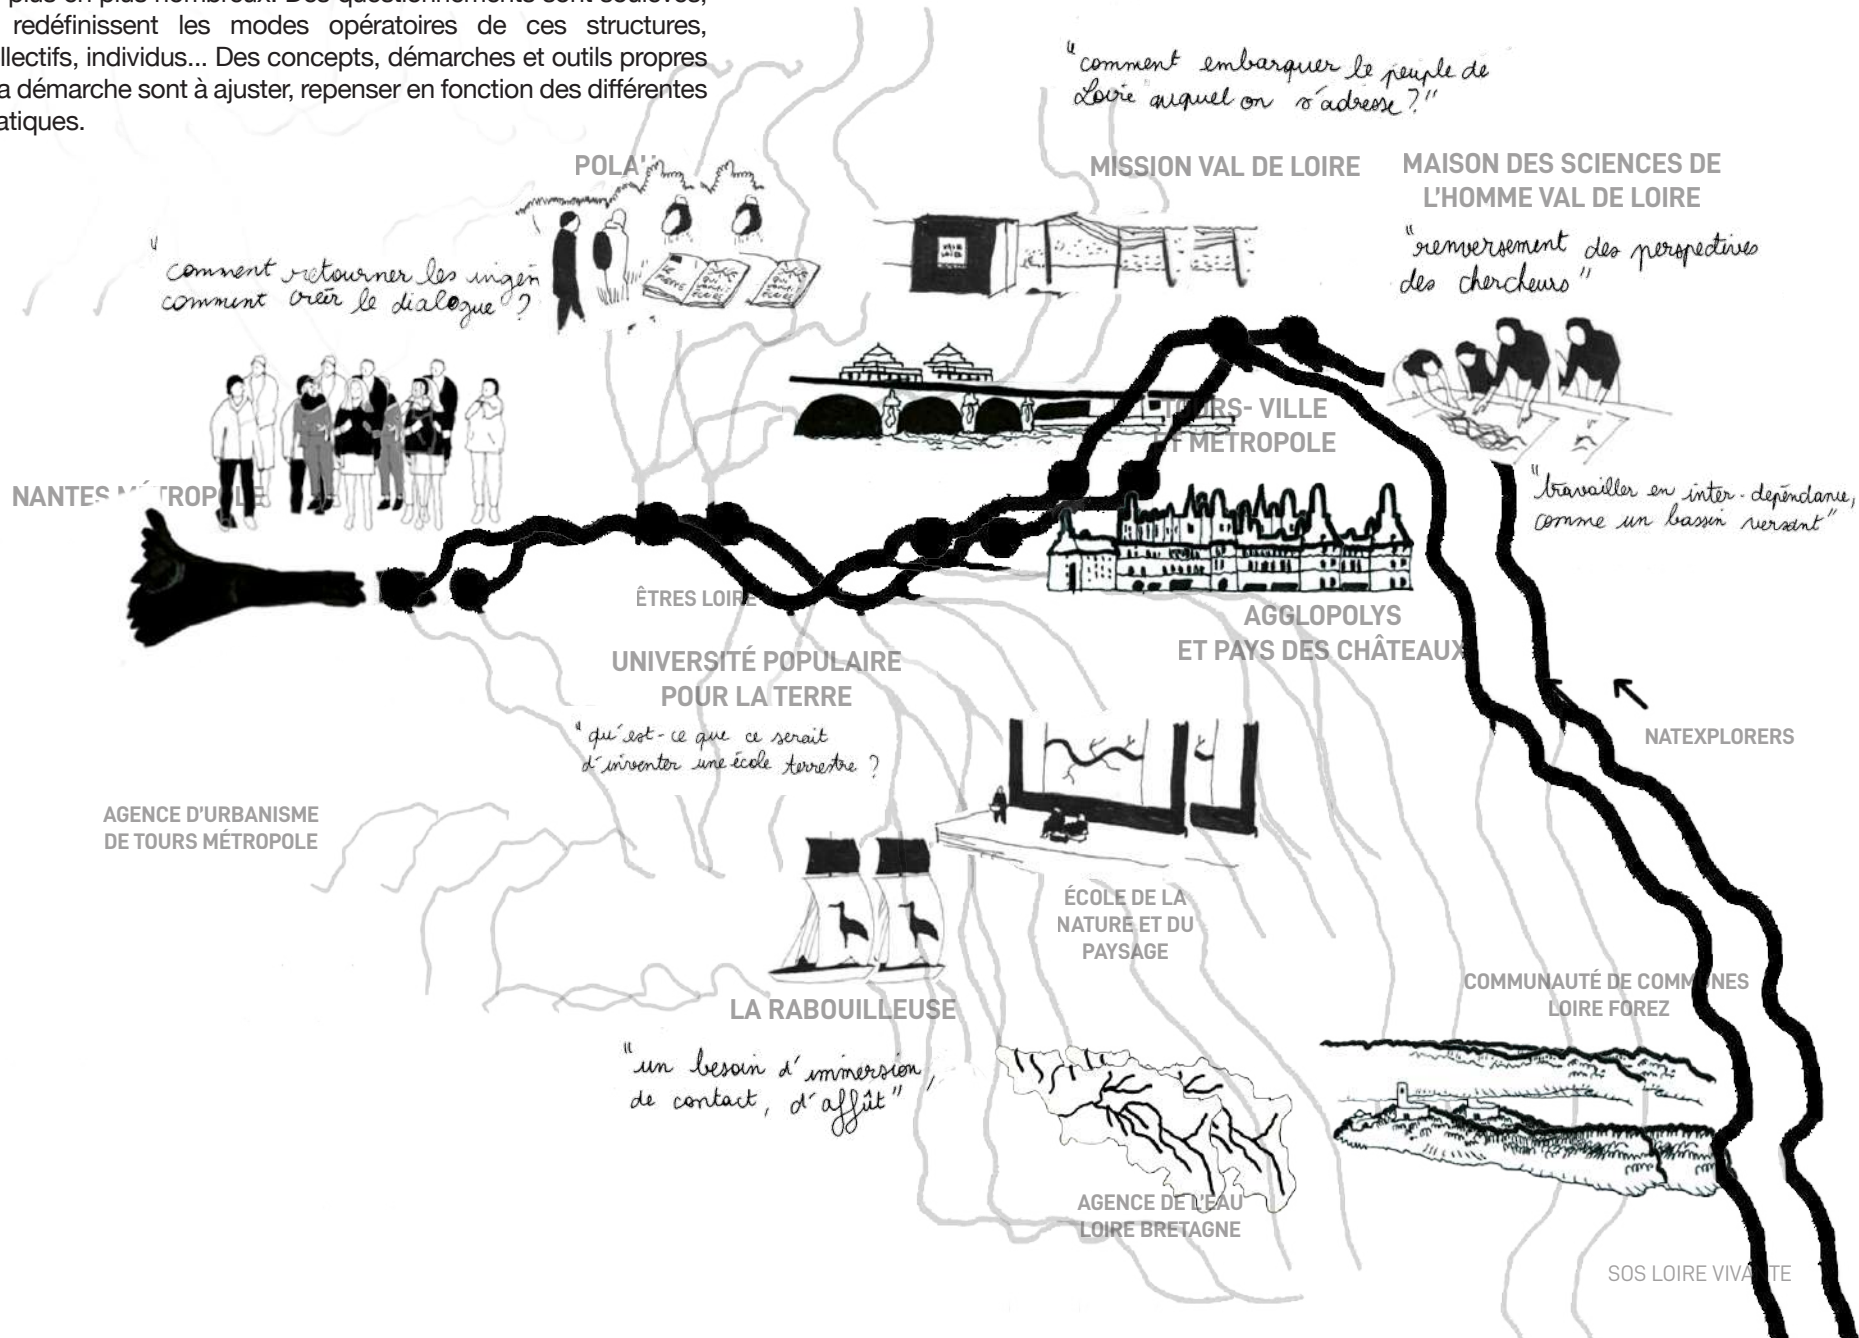 plus en plus nombreux. Des questionnements sont soulevés,
redéfinissent les modes opératoires de ces structures,
llectifs, individus... Des concepts, démarches et outils propres
a démarche sont à ajuster, repenser en fonction des différentes
atiques.
"comment embarquer le peuple de
Loire auquel on s'adresse ?"
POLAU
MISSION VAL DE LOIRE
MAISON DES SCIENCES DE
L'HOMME VAL DE LOIRE
"renversement des perspectives
des chercheurs"
"comment retourner les ingén
comment créer le dialogue ?
VAL DE
LOIRE
TOURS- VILLE
ET MÉTROPOLE
NANTES MÉTROPOLE
"travailler en inter-dépendance,
comme un bassin versant"
ÊTRES LOIRE
AGGLOPOLYS
ET PAYS DES CHÂTEAUX
UNIVERSITÉ POPULAIRE
POUR LA TERRE
"qu'est-ce que ce serait
d'inventer une école terrestre ?
NATEXPLORERS
AGENCE D'URBANISME
DE TOURS MÉTROPOLE
ÉCOLE DE LA
NATURE ET DU
PAYSAGE
COMMUNAUTÉ DE COMMUNES
LOIRE FOREZ
LA RABOUILLEUSE
"un besoin d'immersion,
de contact, d'affût"
AGENCE DE L'EAU
LOIRE BRETAGNE
SOS LOIRE VIVANTE